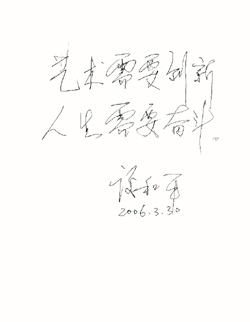 艺术需要创新
人生需要奋斗。
和军
2006.3.30